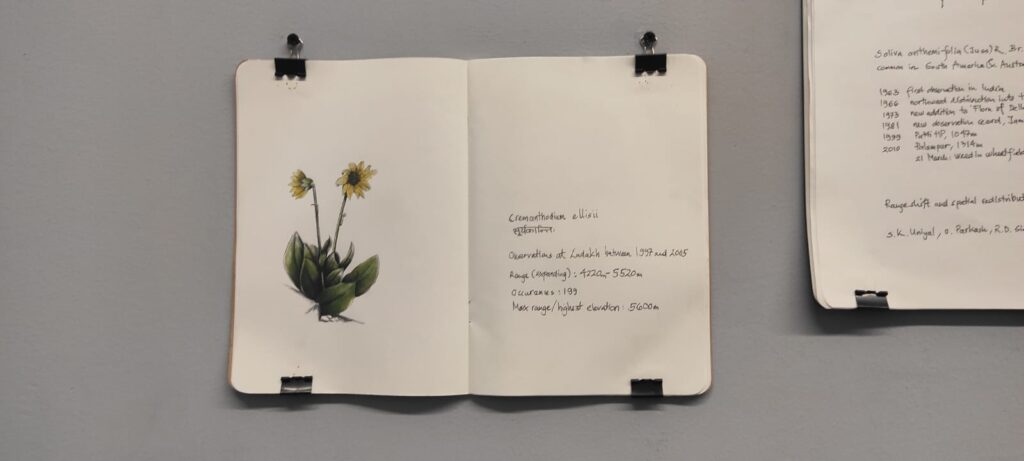 Cremanthodium ellisii
सूर्यकान्ति
Observations at Ladakh between 1997 and 2005
Range (expanding) : 4220m - 5520m
Occurences : 199
Max range/highest elevation : 5600m
Soliva anthemifolia (Juss) R. Br.
common in South America & Austra
1963 first observation in India
1966 northward distribution into
1973 new addition to 'Flora of Delh
1981 new observation record, Jam
1999 HP, 1047m
2010 Palampur, 1314m
21 March: weed in wheatfield
Range shift and spatial redistribut
S.K. Uniyal, O. Parkash, R.D. Sin